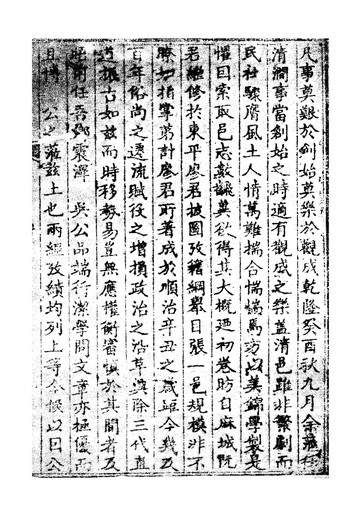 凡事莫艱於創始莫樂於觀成乾隆癸酉秋九月余蒞
清澗事當創始之時適有觀成之樂蓋清邑雖非繁劇而
民社驟膺風土人情萬難揣合惴惴焉恐以美錦學製是
懼因索取邑志數冀欲得其大概廼初卷昉自麻城阮
君繼修於東平廖君披圖攷籍綱舉目張一邑規模非不
瞭如指掌第計廖君所著成於順治辛丑之歲距今幾及
百年俗尚之遷流賦役之增損政治之沿革奚三代直
道振古如茲而時移勢易豈無應權衡審慎於其間者及
晤前任吾鄉震澤 吳公品端行潔學問文章亦極優而
且博 公之蒞茲土也兩經攷績均列上等以因公